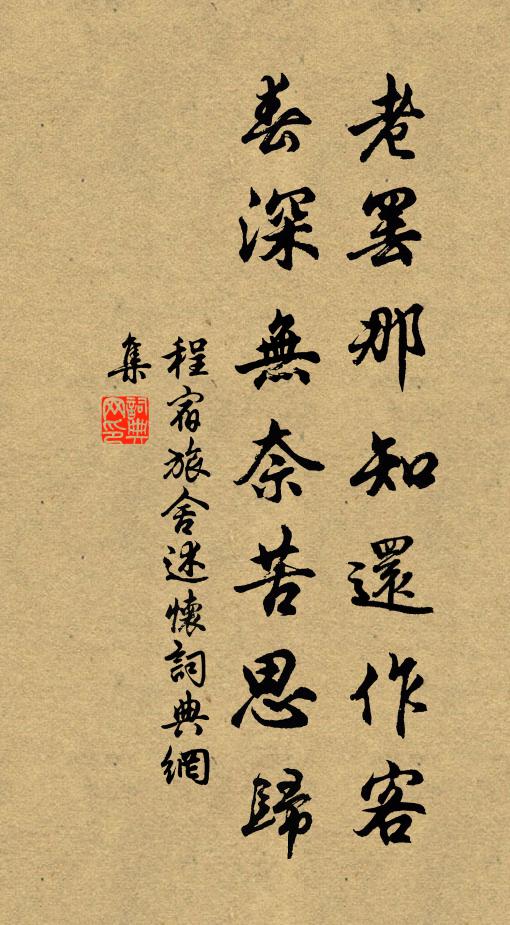 老罢那知還作客
春深無奈苦思歸
程宿旅舍述懷詞典網
集
詞典
网印